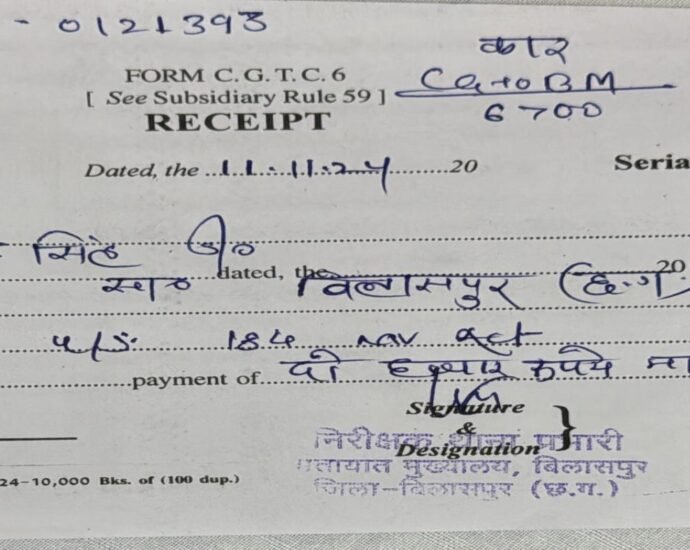 - 0121393
कार
FORM C.G.T.C. 6
CG 10 BM
[ See Subsidiary Rule 59 ]
6700
RECEIPT
Dated, the ...11.11.24...20
Seria
सिंह
dated, the बिलासपुर (छ.ग. 20
u/s. 184 MV Act
payment of दो हजार रूपये मा
Signature
&
Designation
निरीक्षक थाना प्रभारी
यातायात मुख्यालय, बिलासपुर
जिला-बिलासपुर (छ.ग.)
24-10,000 Bks. of (100 dup.)